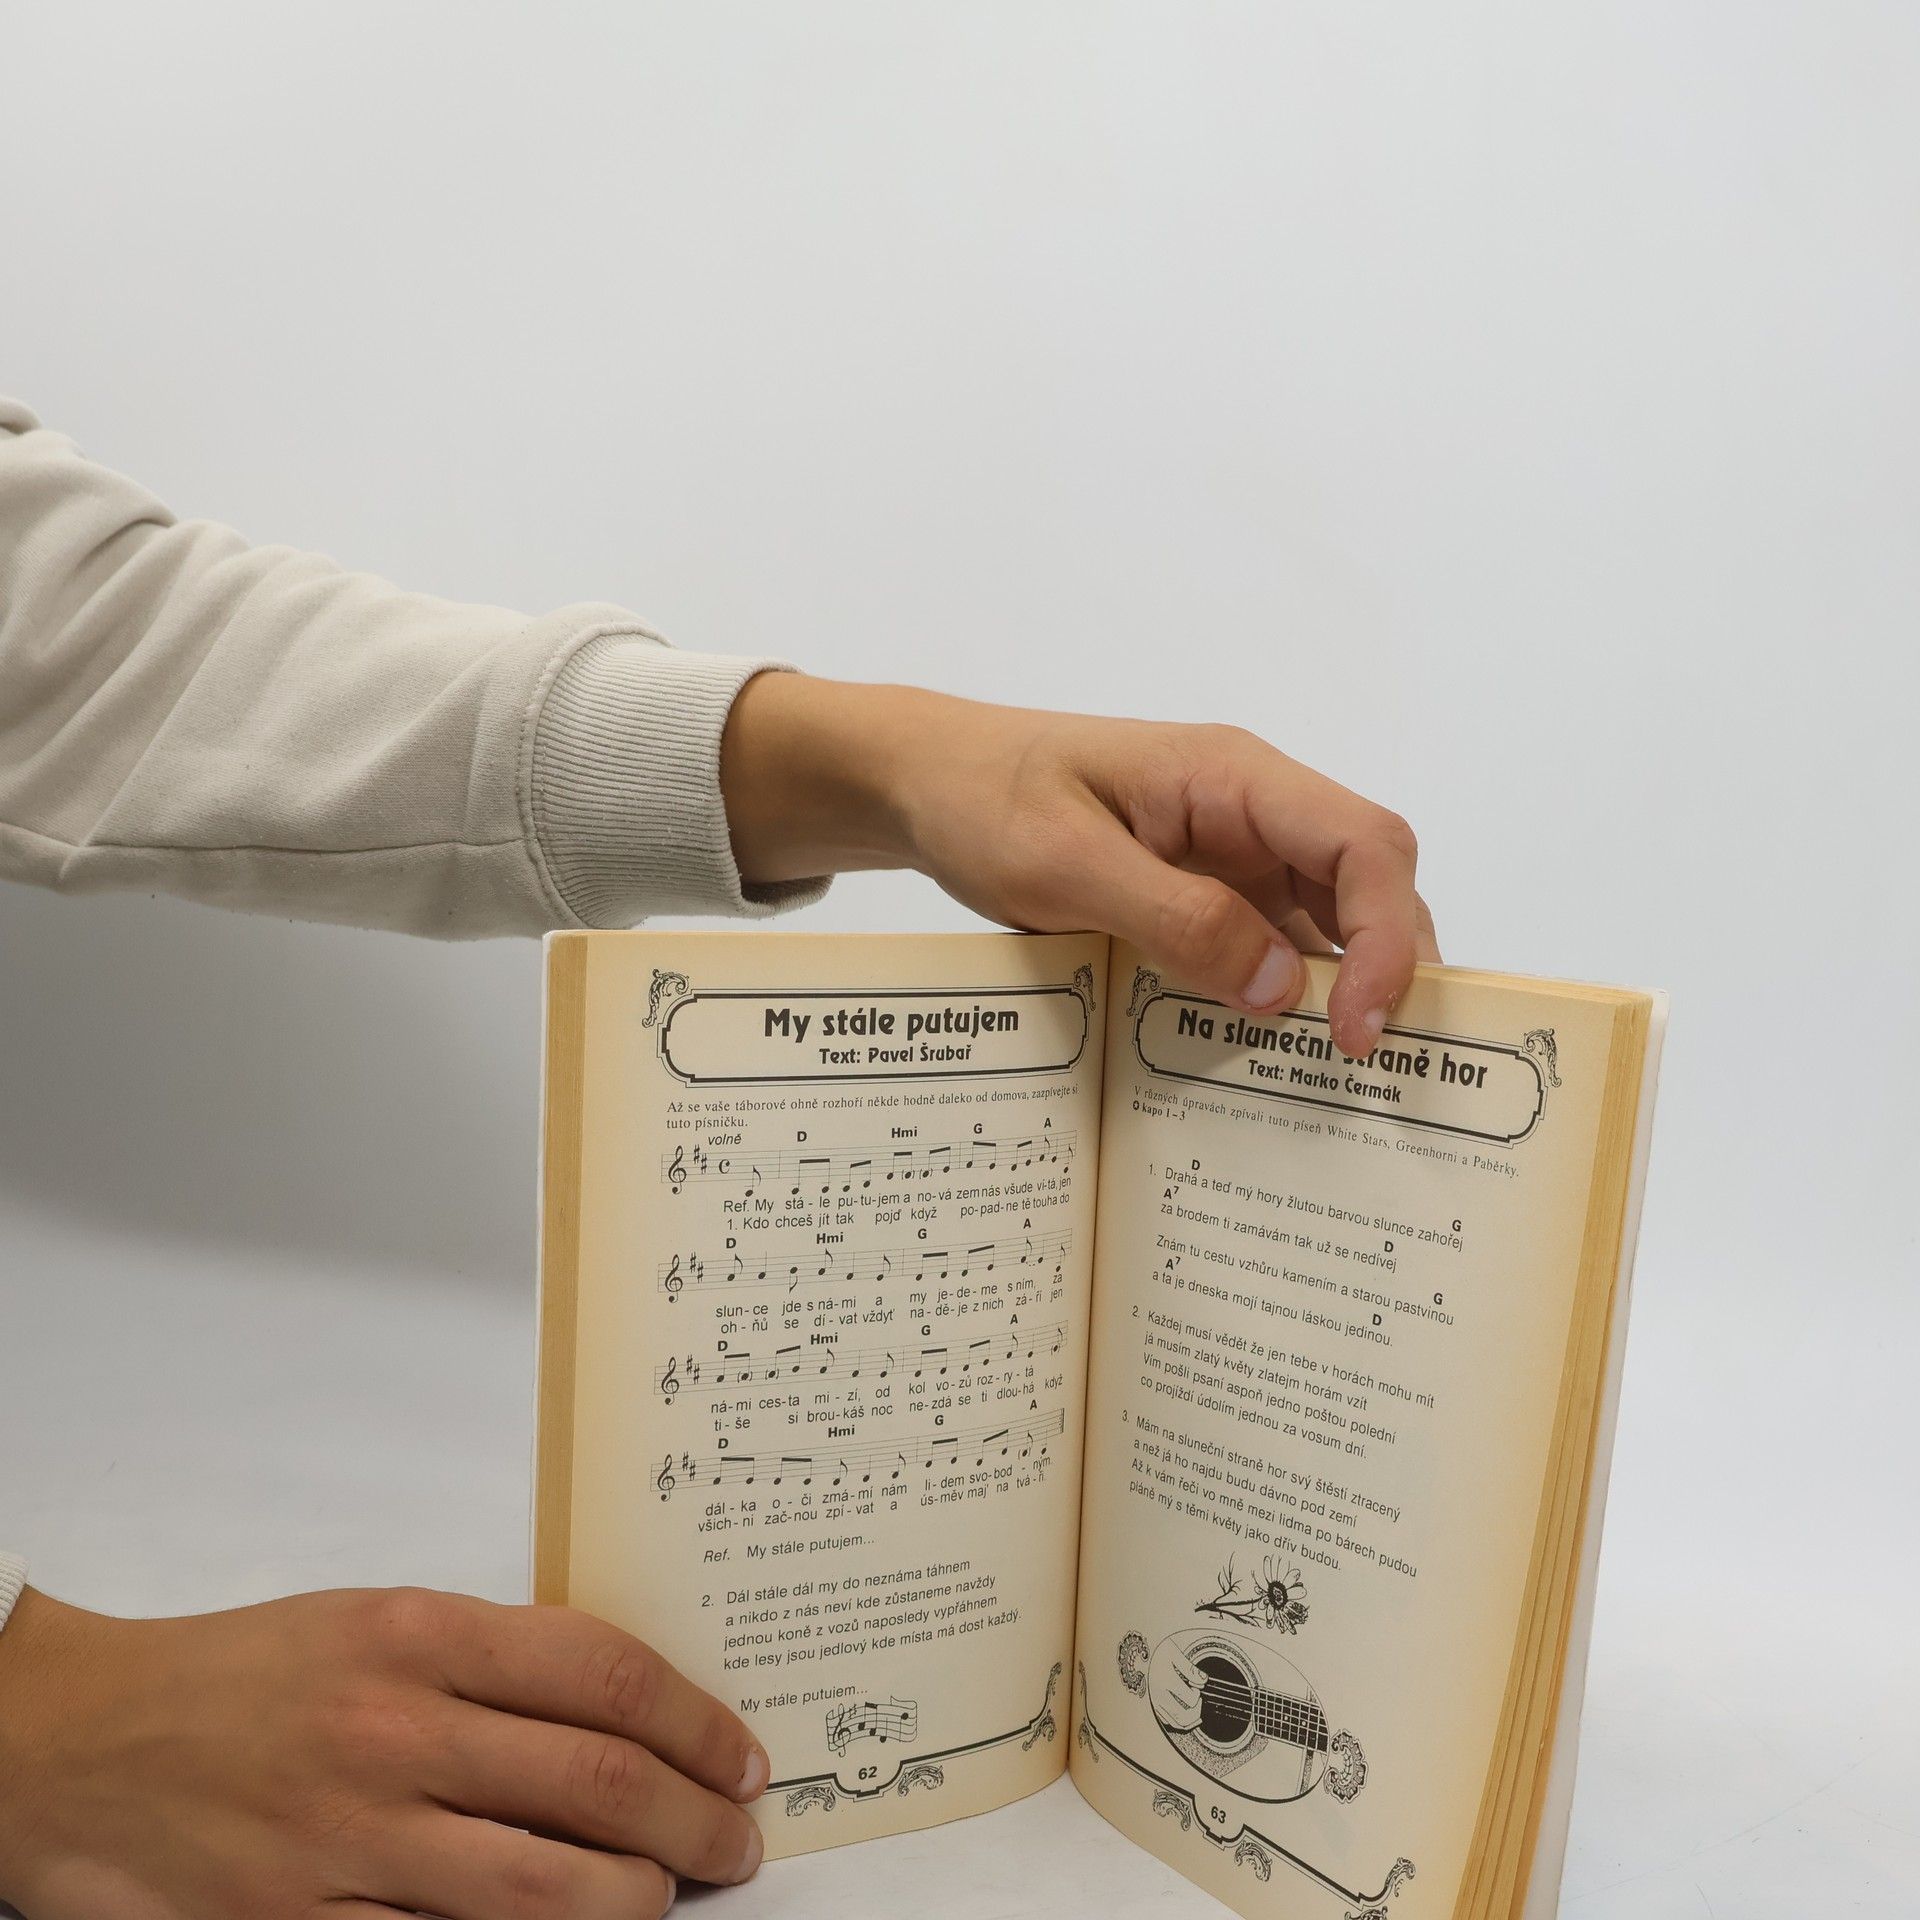 My stále putujem
Text: Pavel Šrubař
Až se vaše táborové ohně rozhoří někde hodně daleko od domova, zazpívejte si
tuto písničku.
volně D Hmi G A
Ref. My stá - le pu-tu-jem a no-vá zem nás všude ví-tá, jen
1. Kdo chceš jít tak pojď když po-pad-ne tě touha do
D Hmi G A
slun-ce jde s ná-mi a my je-de-me s ním, za
oh-ňů se dí-vat vždyť na-dě-je z nich zá-ří jen
D Hmi G A
ná-mi ces-ta mi-zí, od kol vo-zů roz-ry-tá
ti-še si brou-káš noc ne-zdá se ti dlou-há když
D Hmi G A
dál-ka o-či zmá-mí nám li-dem svo-bod-ným.
všich-ni zač-nou zpí-vat a ús-měv maj' na tvá-ři.
Ref. My stále putujem...
2. Dál stále dál my do neznáma táhnem
a nikdo z nás neví kde zůstaneme navždy
jednou koně z vozů naposledy vypřáhnem
kde lesy jsou jedlový kde místa má dost každý.
My stále putujem...
62
Na sluneční straně hor
Text: Marko Čermák
V různých úpravách zpívali tuto píseň White Stars, Greenhorni a Paběrky.
kapo 1–3
D
1. Drahá a teď mý hory žlutou barvou slunce zahořej
A7 G
za brodem ti zamávám tak už se nedívej
D
Znám tu cestu vzhůru kamením a starou pastvinou
A7 G
a ta je dneska mojí tajnou láskou jedinou.
D
2. Každej musí vědět že jen tebe v horách mohu mít
já musím zlatý květy zlatejm horám vzít
Vím pošli psaní aspoň jedno poštou polední
co projíždí údolím jednou za vosum dní.
3. Mám na sluneční straně hor svý štěstí ztracený
a než já ho najdu budu dávno pod zemí
Až k vám řeči vo mně mezi lidma po bárech pudou
pláně mý s těmi květy jako dřív budou.
63